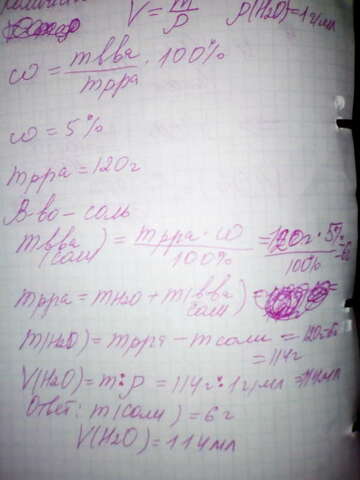 V = m/ρ ρ(H2O)=1г/мл
ω = mвва/mрра · 100%
ω = 5%
mрра = 120г
В-во - соль
mвва (соли) = mрра · ω / 100% = 120г · 5% / 100% = 6г
mрра = mH2O + m(вва соли)
m(H2O) = mрра - mсоли = 120г-6г
= 114г
V(H2O) = m : ρ = 114г : 1г/мл = 114мл
Ответ: m(соли) = 6г
V(H2O) = 114мл